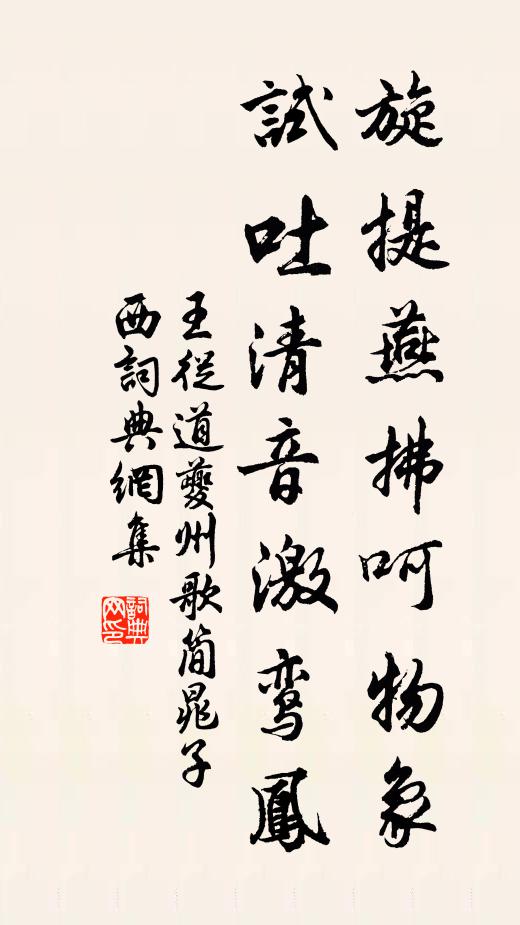 旋提燕拂呵物象
試吐清音激鸾鳳
王從道夔州歌簡晁子
西詞典網集
詞典网印